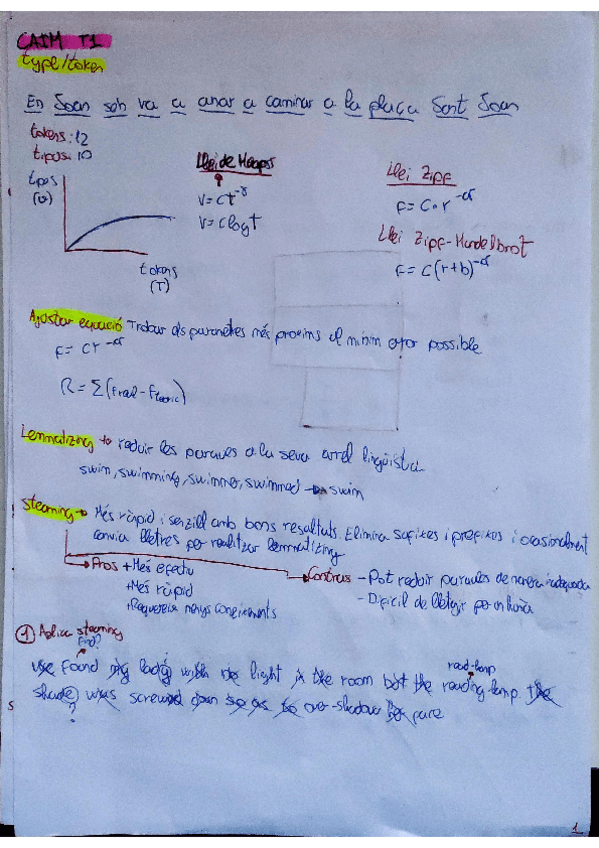 CAIM T1
type/token
En Joan soh va a anar a caminar a la plaça Sant Joan
tokens: 12
tipos: 10
tipos
(v)
tokens
(T)
Llei de Heaps
V = ct^-γ
V = c log t
Llei Zipf
F = C · r^-α
Llei Zipf-Mandelbrot
F = C(r+b)^-α
Ajustar equació Trobar els parametres més proxims al minim error possible
F = Cr^-α
R = Σ(Freal - Fteoric)
Lemmatizing → reduir les paraules a la seva arrel lingüística
swim, swimming, swimmer, swimmed → swim
Steaming → Més ràpid i senzill amb bons resultats. Elimina sufixes i prefixes i ocasionalment
canvia lletres per realitzar lemmatizing
→ Pros + Més efectiu
+ Més ràpid
+ Requereix menys coneixements
→ Contras - Pot reduir paraules de manera inadequada
- Dificil de llegir per un humà
① Aplica steaming
find?
read-lamp
use found my lady with no light in the room but the reading lamp. the
shade was screwed down so as to over-shadow her
?
1